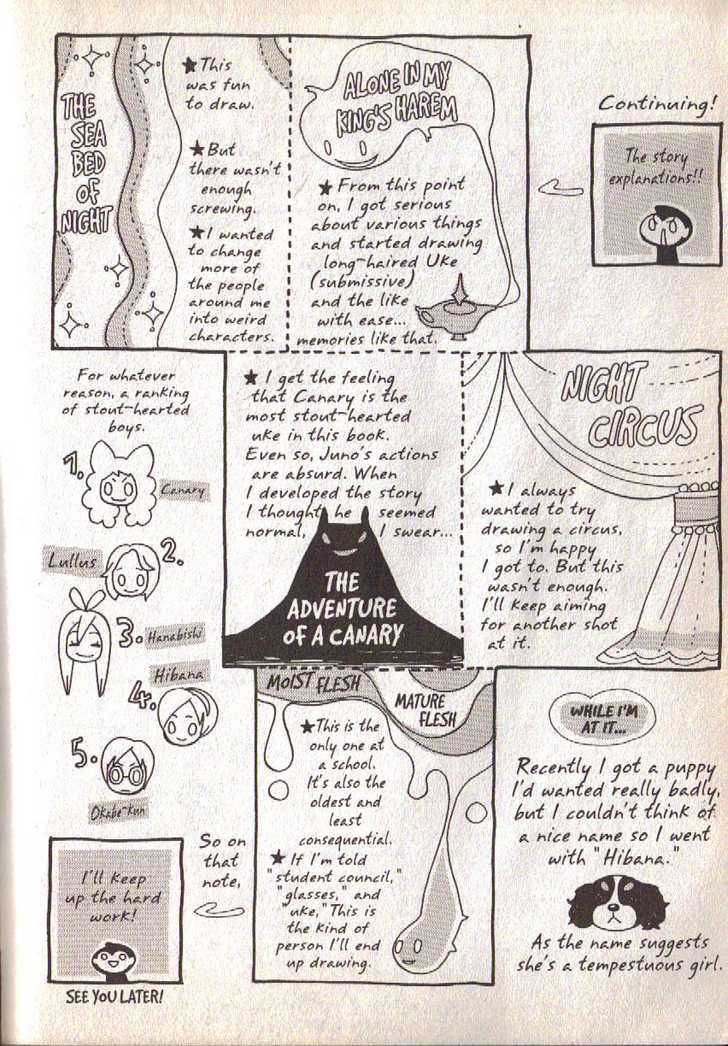 Continuing!
The story
explanations!!
ALONE IN MY
KING'S HAREM
★ From this point
on, I got serious
about various things
and started drawing
long-haired Uke
(submissive)
and the like
with ease...
memories like that.
THE
SEA
BED
OF
NIGHT
★ This
was fun
to draw.
★ But
there wasn't
enough
screwing.
★ I wanted
to change
more of
the people
around me
into weird
characters.
NIGHT
CIRCUS
★ I always
wanted to try
drawing a circus,
so I'm happy
I got to. But this
wasn't enough.
I'll keep aiming
for another shot
at it.
★ I get the feeling
that Canary is the
most stout-hearted
uke in this book.
Even so, Juno's actions
are absurd. When
I developed the story
I thought he seemed
normal, I swear...
THE
ADVENTURE
OF A CANARY
For whatever
reason, a ranking
of stout-hearted
boys.
1.
Canary
Lullus
2.
3. Hanabishi
Hibana
4.
5.
Okabe-kun
MOIST FLESH
MATURE
FLESH
★ This is the
only one at
a school.
It's also the
oldest and
least
consequential.
★ If I'm told
"student council,"
"glasses," and
"uke," This is
the kind of
person I'll end
up drawing.
WHILE I'M
AT IT...
Recently I got a puppy
I'd wanted really badly,
but I couldn't think of
a nice name so I went
with "Hibana."
As the name suggests
she's a tempestuous girl.
So on
that
note,
I'll keep
up the hard
work!
SEE YOU LATER!